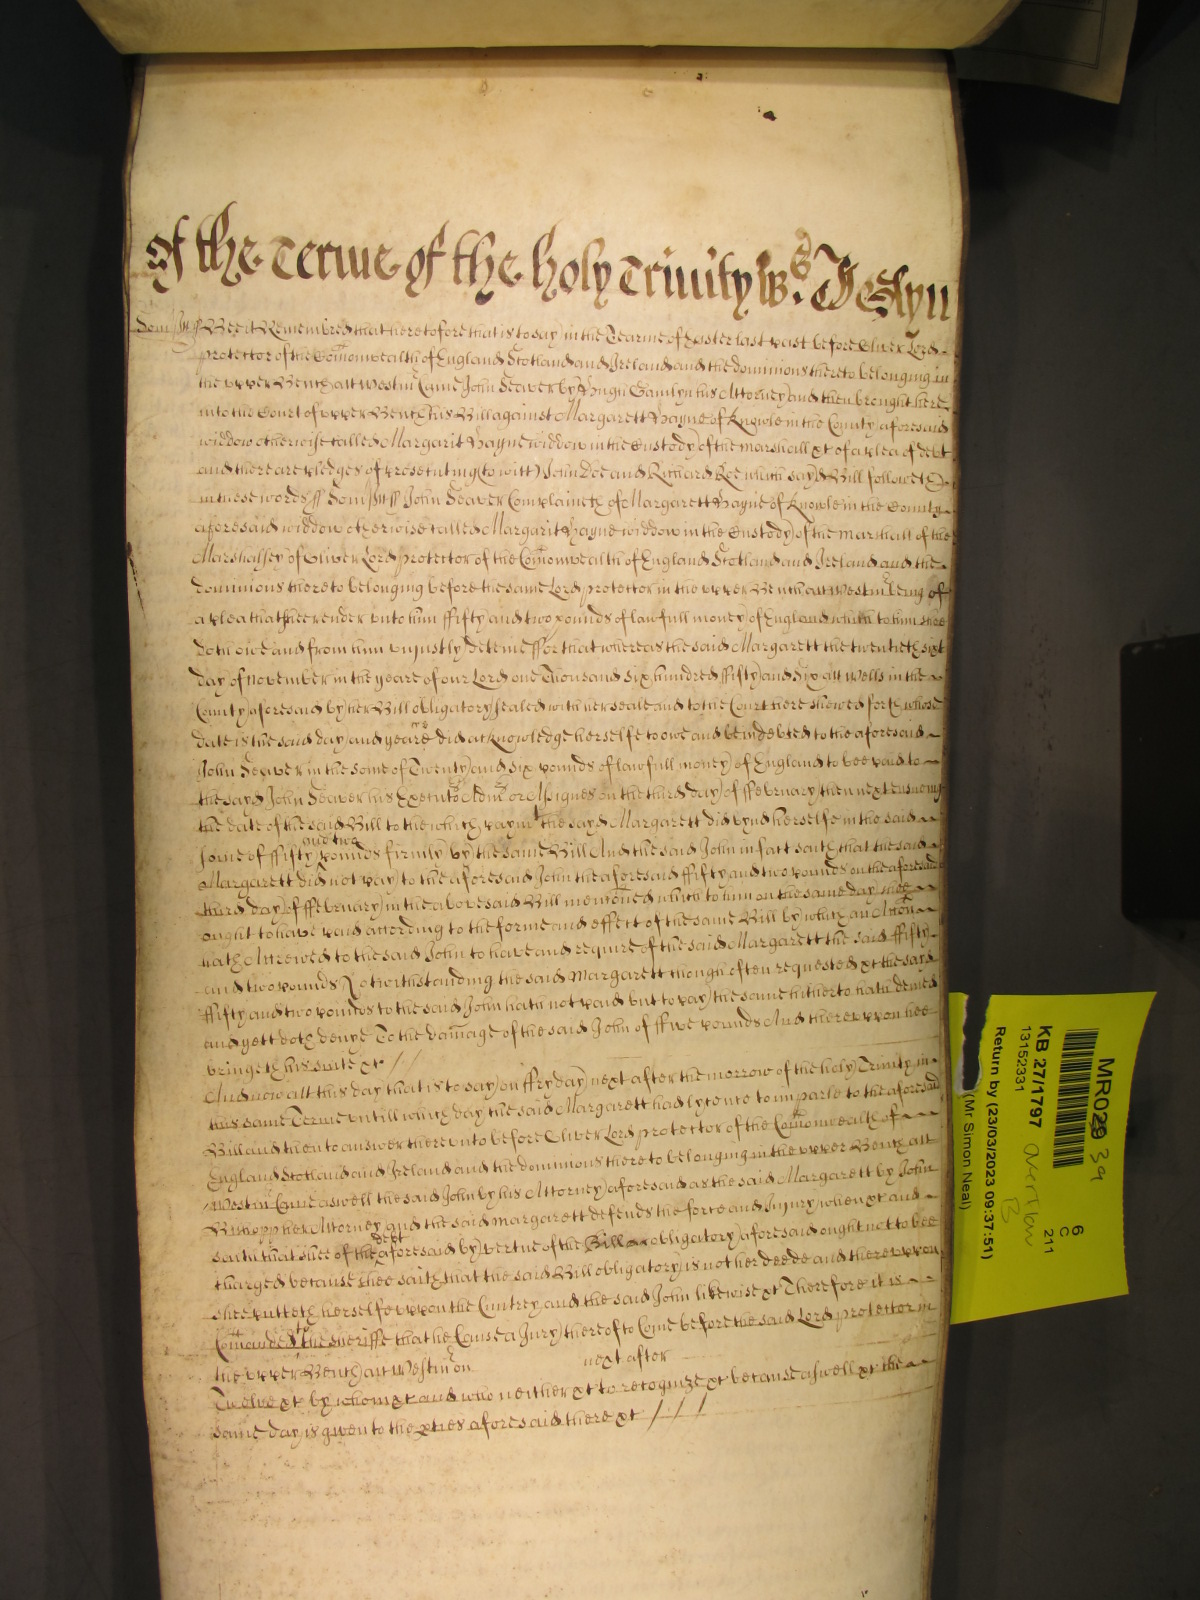 Of the Terme of the holy Trinity Ws. Joslyn
Som'sett ss Bee it Remembred that heretofore that is to say in the Tearme of Easter last past before Oliver Lord
protector of the Comonwealth of England Scotland and Ireland and the dominions thereto belonging in
the upper Bench att Westm Came John Seaver by Hugh Gamlyn his Attorney and then brought here
into the Court of upper Bench his Bill against Margarett Hayne of Knowle in the County aforesaid
widdow otherwise called Margarit Hayne widdow in the Custody of the marshall &c of a plea of debt
and there are pledges of prosecuting (to witt) John Doe and Richard Roe which sayd Bill followeth
in these words ss Som'sett ss John Seaver Complaineth of Margarett Hayne of Knowle in the County
aforesaid widdow otherwise called Margarit Hayne widdow in the Custody of the marshall of the
Marshalsey of Oliver Lord protector of the Comonwealth of England Scotland and Ireland and the
dominions thereto belonging before the same Lord protector in the upper Bench att Westm being of
a plea that shee render unto him ffifty and two pounds of lawfull money of England which to him shee
doth owe and from him unjustly deteine ffor that whereas the said Margarett the twentieth sixt
day of November in the yeare of our Lord one Thousand six hundred ffifty and six att Wells in the
County aforesaid by her Bill obligatory sealed with her seale and to the Court here shewed forth whose
date is the said day and yeare did acknowledge herselfe to owe and be indebted to the aforesaid
John Seaver in the some of Twenty and six pounds of lawfull money of England to bee paid to
the sayd John Seaver his Executo Adm or Assignes on the third day of ffebruary then next ensueing
the date of the said Bill to the which paymt the sayd Margarett did bynd herselfe in the said
some of ffifty and two pounds firmly by the same Bill And the said John in fact saith that the said
Margarett did not pay to the aforesaid John the aforesaid ffifty and two pounds on the aforesaid
third day of ffebruary in the abovesaid Bill mentioned which to him on the same day shee
ought to have paid according to the forme and effect of the same Bill by which an Action
hath Accrewed to the said John to have and require of the said Margarett the said ffifty
and two pounds Notwithstanding the said Margarett though often requested &c the sayd
ffifty and two pounds to the said John hath not paid but to pay the same hitherto hath denied
and yett doth denye To the damage of the said John of ffive pounds And thereuppon hee
bringeth his suite &c //
And now att this day that is to say on ffryday next after the morrow of the holy Trinity in
this same Terme untill which day the said Margarett had lycence to imparle to the aforesaid
Bill and then to answer thereunto before Oliver Lord protector of the Comonwealth of
England Scotland and Ireland and the dominions thereto belonging in the upper Bench att
Westm Came aswell the said John by his Attorney aforesaid as the said Margarett by John
Bishopp her Attorney and the said Margarett defends the force and Injury when &c and
saith that shee of the debt aforesaid by vertue of the Bill obligatory aforesaid ought not to bee
charged because shee saith that the said Bill obligatory is not her deede and thereuppon
shee putteth herselfe uppon the Cuntrey and the said John likewise &c Therefore it is
Comanded to the sheriffe that he Cause a Jury thereof to Come before the said Lord protector in
the upper Bench att Westm on next after
Twelve &c by whom &c and who neither &c to recognize &c because aswell &c the
same day is given to the pties aforesaid there &c ///
MR029 39
6
C
211
KB 27/1797
overflow
B
13152331
Return by (23/03/2023 09:37:51)
(Mr Simon Neal)